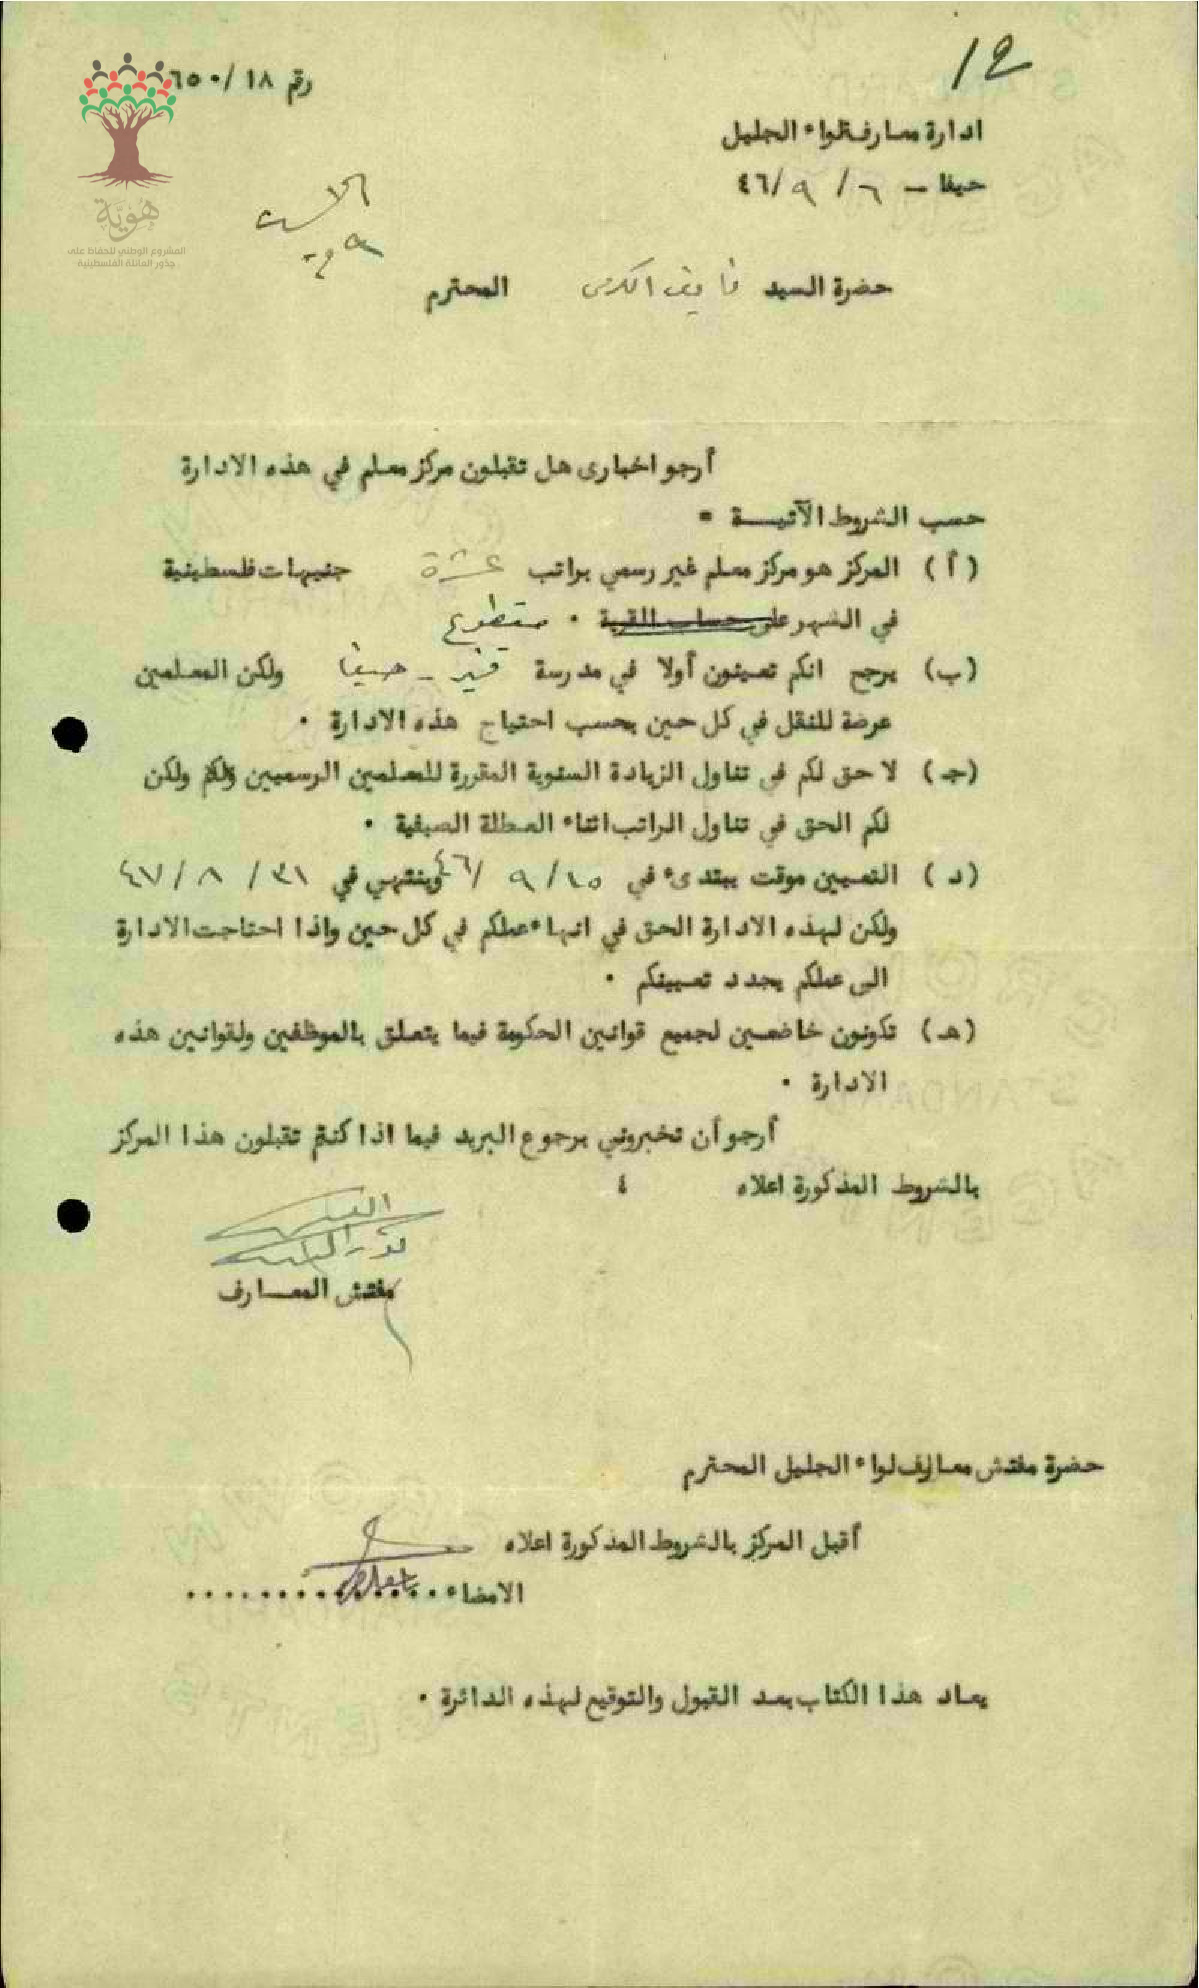 ١٢
رقم ٦٥٠/١٨
هوية
المشروع الوطني للحفاظ على
جذور العائلة الفلسطينية
ادارة معارف لواء الجليل
حيفا - ٦/ ٩ /٤٦
حضرة السيد فايق المحترم
أرجو اخباري هل تقبلون مركز معلم في هذه الادارة
حسب الشروط الآتيــة =
(أ) المركز هو مركز معلم غير رسمي براتب عشرة جنيهات فلسطينية
في الشهر على حساب القرية . مقطوع
(ب) يرجح انكم تعينون أولا في مدرسة قنير - حيفا ولكن المعلمين
عرضة للنقل في كل حين بحسب احتياج هذه الادارة .
(جـ) لا حق لكم في تناول الزيادة السنوية المقررة للمعلمين الرسميين ولكن
لكم الحق في تناول الراتب اثناء العطلة الصيفية .
(د) التعيين موقت يبتدىء في ١٥/ ٩ /٤٦ وينتهي في ٣١/ ٨ /٤٧
ولكن لهذه الادارة الحق في انهاء عملكم في كل حين واذا احتاجت الادارة
الى عملكم يجدد تعيينكم .
(هـ) تكونون خاضعين لجميع قوانين الحكومة فيما يتعلق بالموظفين ولقوانين هذه
الادارة .
أرجو أن تخبروني برجوع البريد فيما اذا كنتم تقبلون هذا المركز
بالشروط المذكورة اعلاه ٤
مفتش المعــارف
حضرة مفتش معارف لواء الجليل المحترم
أقبل المركز بالشروط المذكورة اعلاه
الامضاء ..............
يعاد هذا الكتاب بعد القبول والتوقيع لهذه الدائرة .